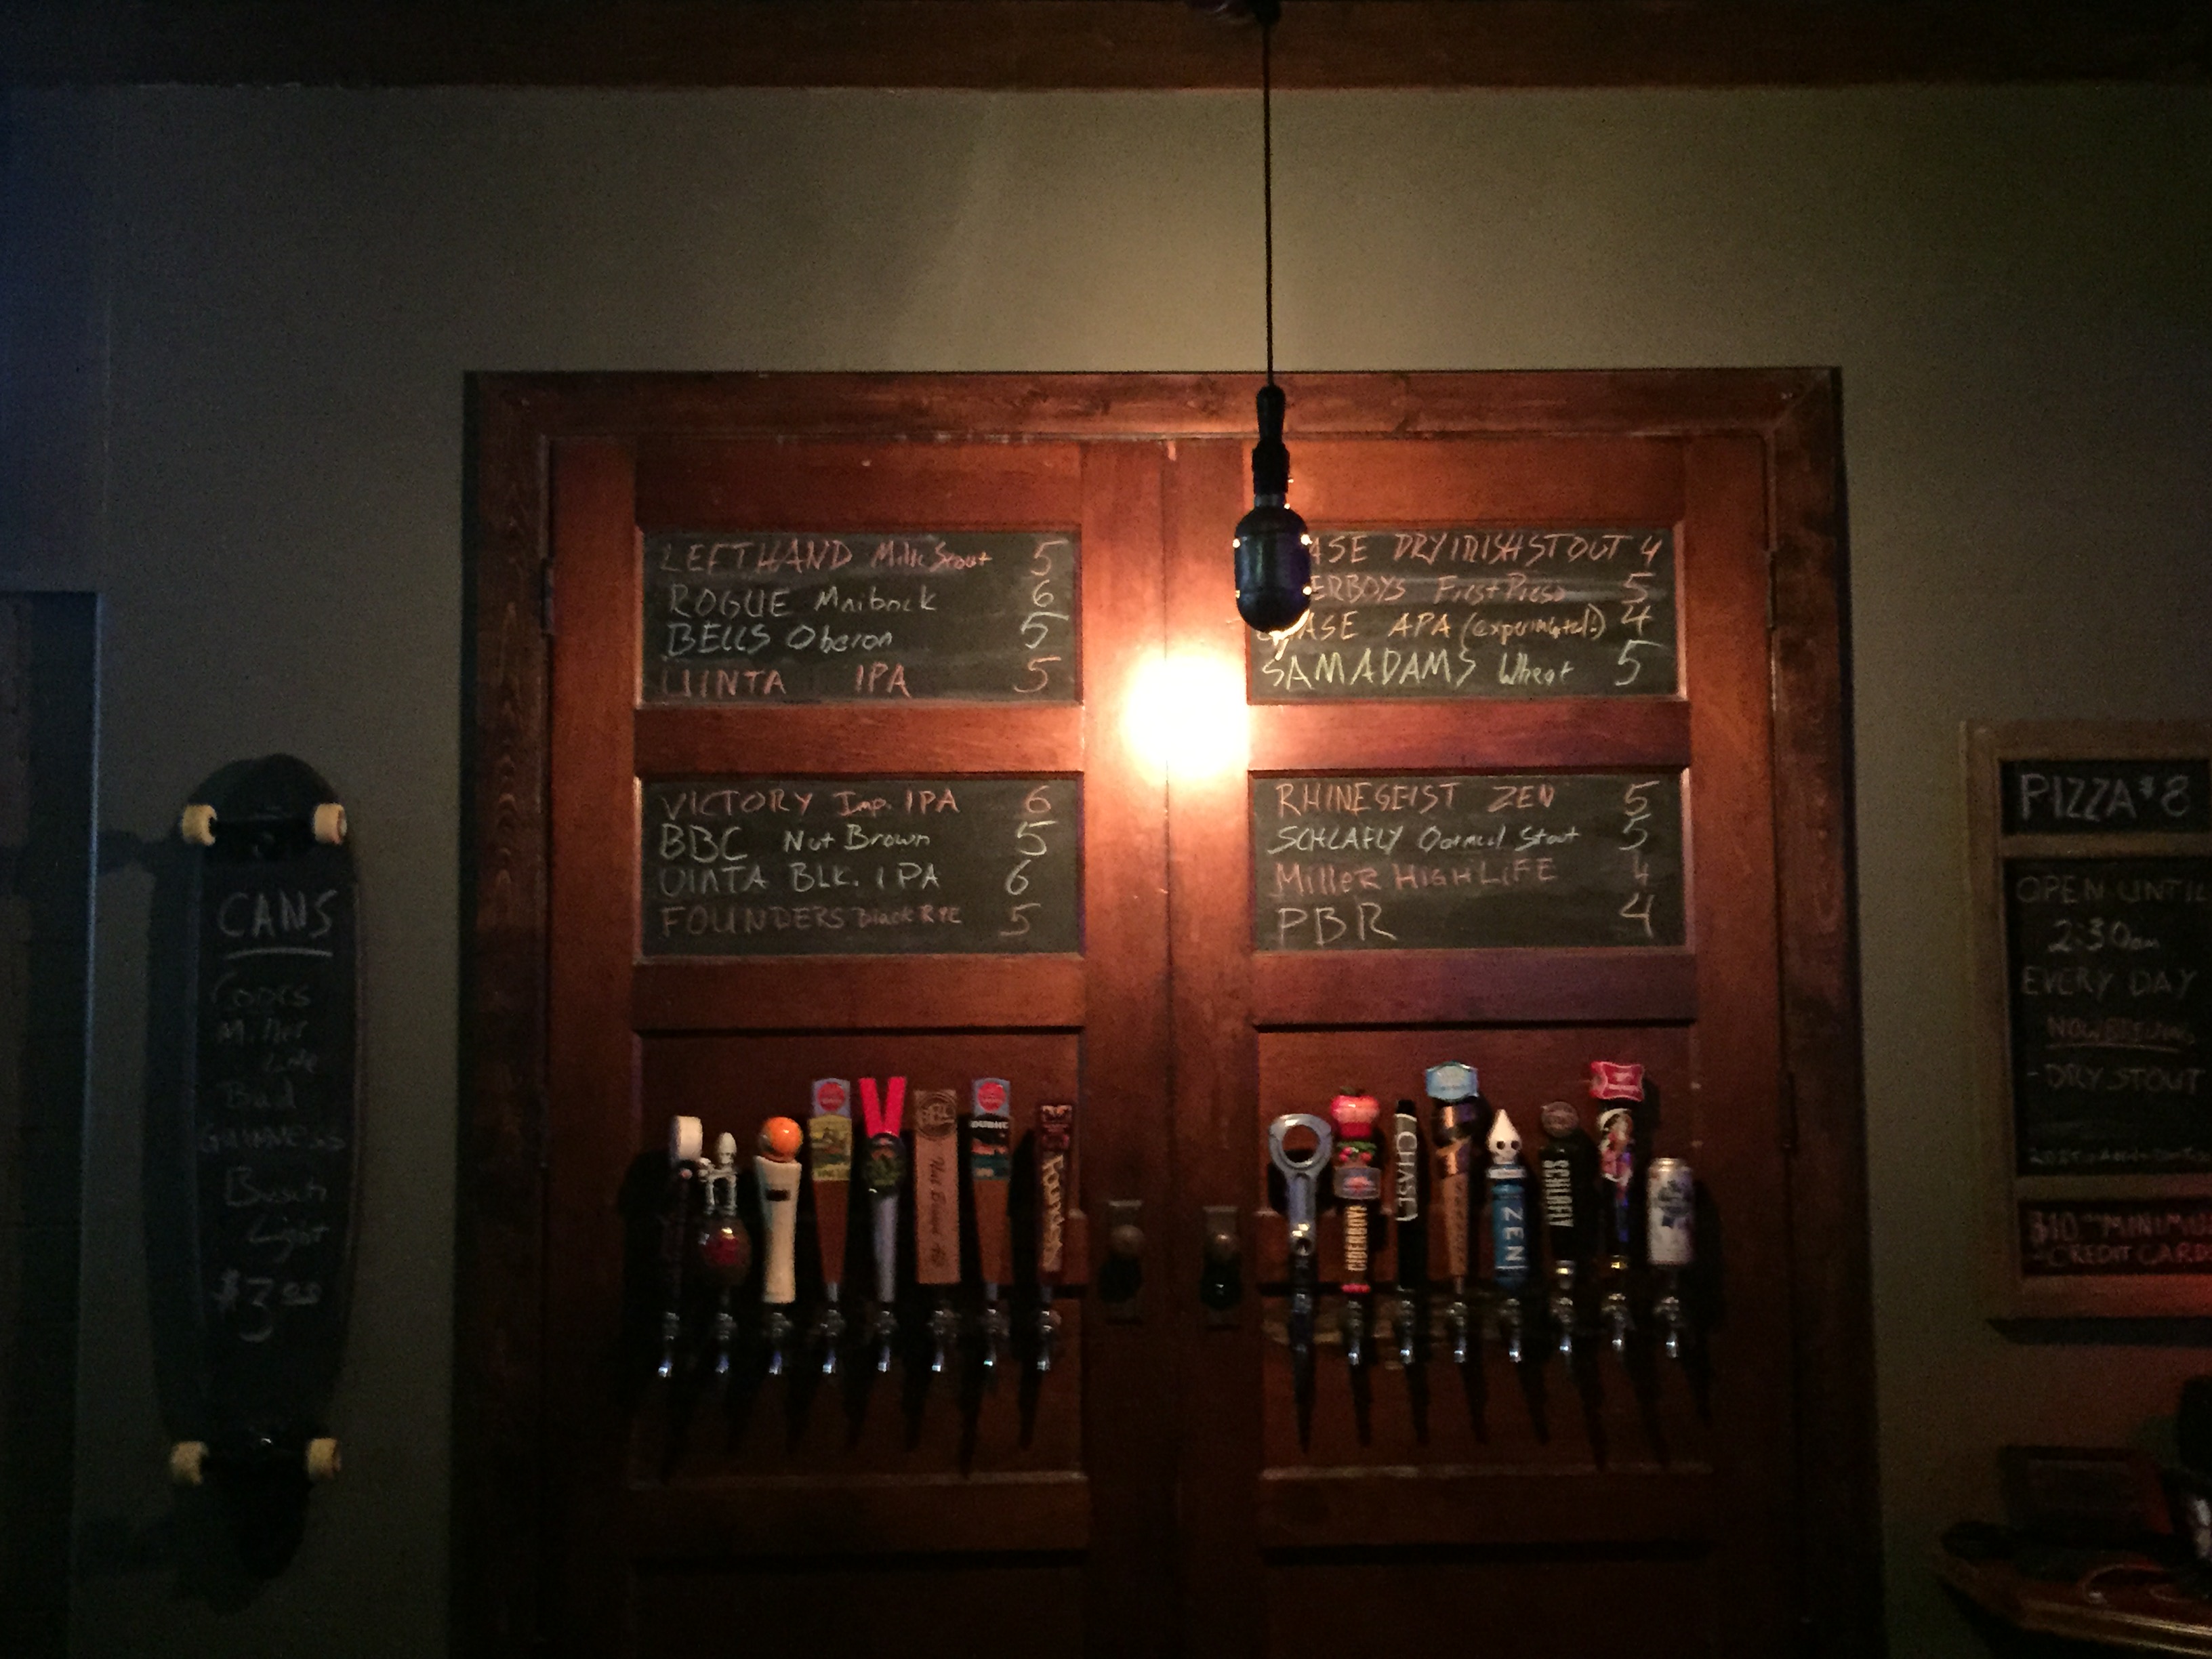 LEFTHAND Milk Stout 5
ROGUE Maibock 6
BELLS Oberon 5
UINTA IPA 5
VICTORY Imp. IPA 6
BBC Nut Brown 5
UINTA BLK. IPA 6
FOUNDERS Black RYE 5
ASE DRY IRISH STOUT 4
ERBOYS First Press 5
ASE APA (experimental!) 4
SAMADAMS Wheat 5
RHINEGEIST ZEN 5
SCHLAFLY Oatmeal Stout 5
MilleR HIGH LIFE 4
PBR 4
CANS
Miller
Lite
Bud
GUINNESS
Busch
Light
$3.00
PIZZA $8
OPEN UNTIL
2:30am
EVERY DAY
NOW BREWING
-DRY STOUT
$10 MINIMU
-CREDIT CARD
Nut Brown Ale
Founders
CIDERBOYS
CHASE
ZEN
SCHLAFLY